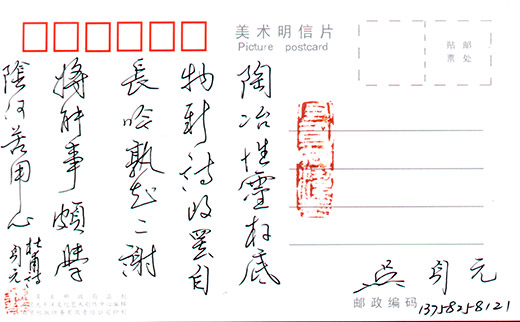 美术明信片
Picture postcard
贴 邮
票 处
陶冶性靈存底
物新诗改罢自
長吟孰知二謝
將能事頗學
陰何苦用心
杜甫诗
周元
吴周元
邮政编码
13758258121